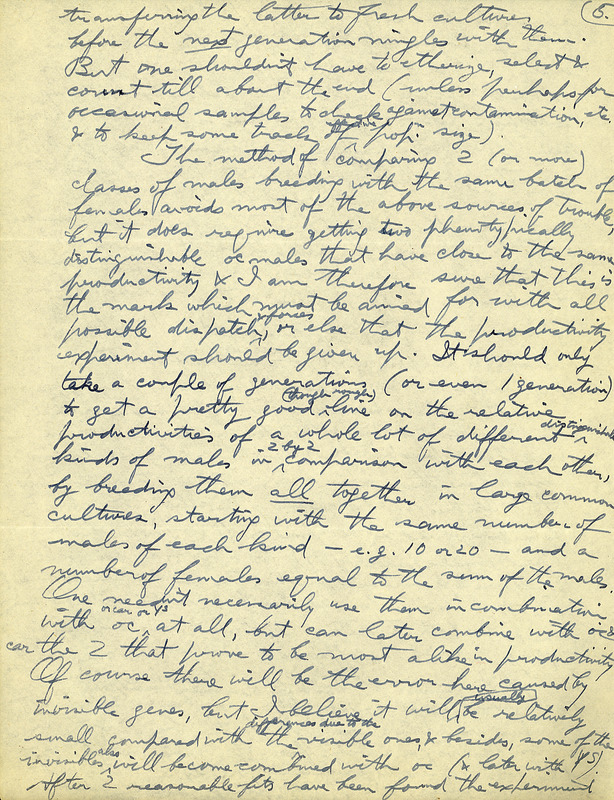 (5.
transferring the latter to fresh cultures
before the next generation mingles with them.
But one shouldn't have to etherize, select &
count till about the end (unless perhaps for
occasional samples to check against contamination, etc.
& to keep some track of effective pop. size)
The method of comparing 2 (or more)
classes of males breeding with the same batch of
females avoids most of the above sources of trouble,
but it does require getting two phenotypically
distinguishable oc males that have close to the same
productivity & I am therefore sure that this is
the mark which must be aimed for with all
possible dispatch, & forces or else that the productivity
experiment should be given up. It should only
take a couple of generations (or even 1 generation)
to get a pretty good (though rough) line on the relative
productivities of a whole lot of different distinguishable
kinds of males in 2 by 2 comparison with each other,
by breeding them all together in large common
cultures, starting with the same number of
males of each kind – e.g. 10 or 20 – and a
number of females equal to the sum of the males.
One needn't necessarily use them in combination
with oc or car or ys at all, but can later combine with oc &
car the 2 that prove to be most alike in productivity
Of course there will be the error here caused by
invisible genes, but I believe it will usually be relatively
small compared with the differences due to the visible ones, & besides, some of the
invisibles also will become combined with oc (& later with ys)
After 2 reasonable fits have been found the experiment